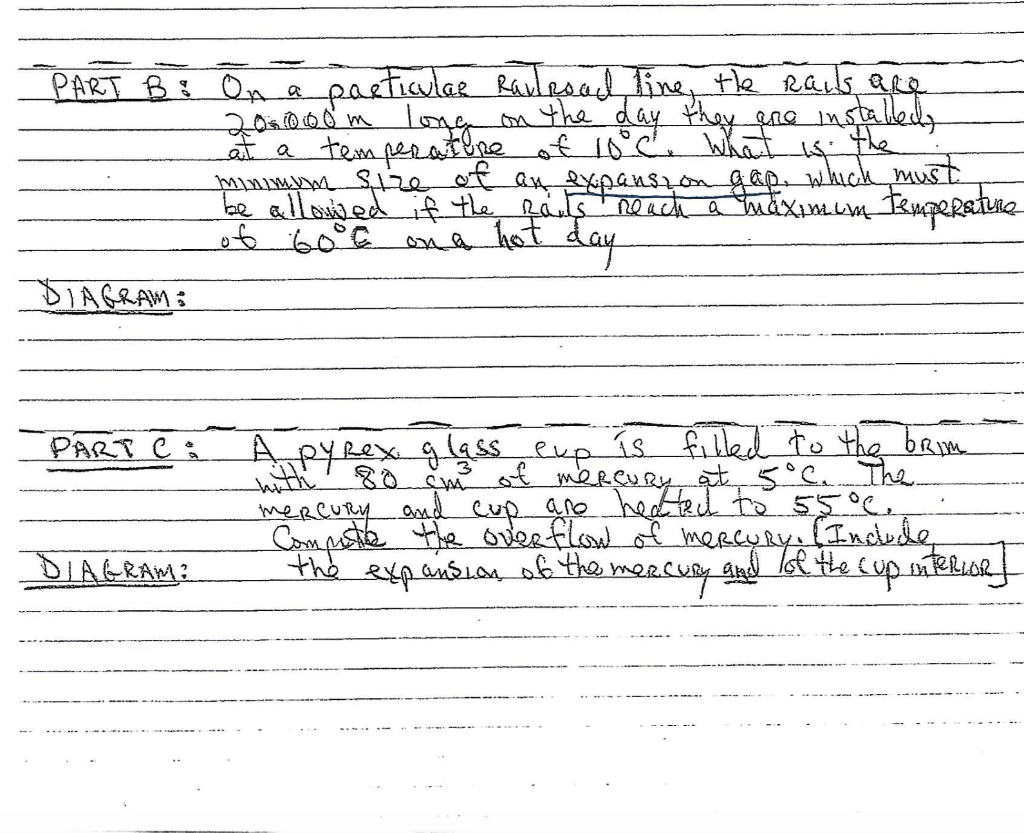 PART B: On a particular Railroad line, the rails are
20.000 m long on the day they are installed,
at a temperature of 10°C. What is the
minimum size of an expansion gap, which must
be allowed if the rails reach a maximum temperature
of 60°C on a hot day
DIAGRAM:
PART C: A pyrex glass cup is filled to the brim
with 80 cm³ of mercury at 5°C. The
mercury and cup are heated to 55°C.
Compute the overflow of mercury. [Include
DIAGRAM: the expansion of the mercury and of the cup interior]